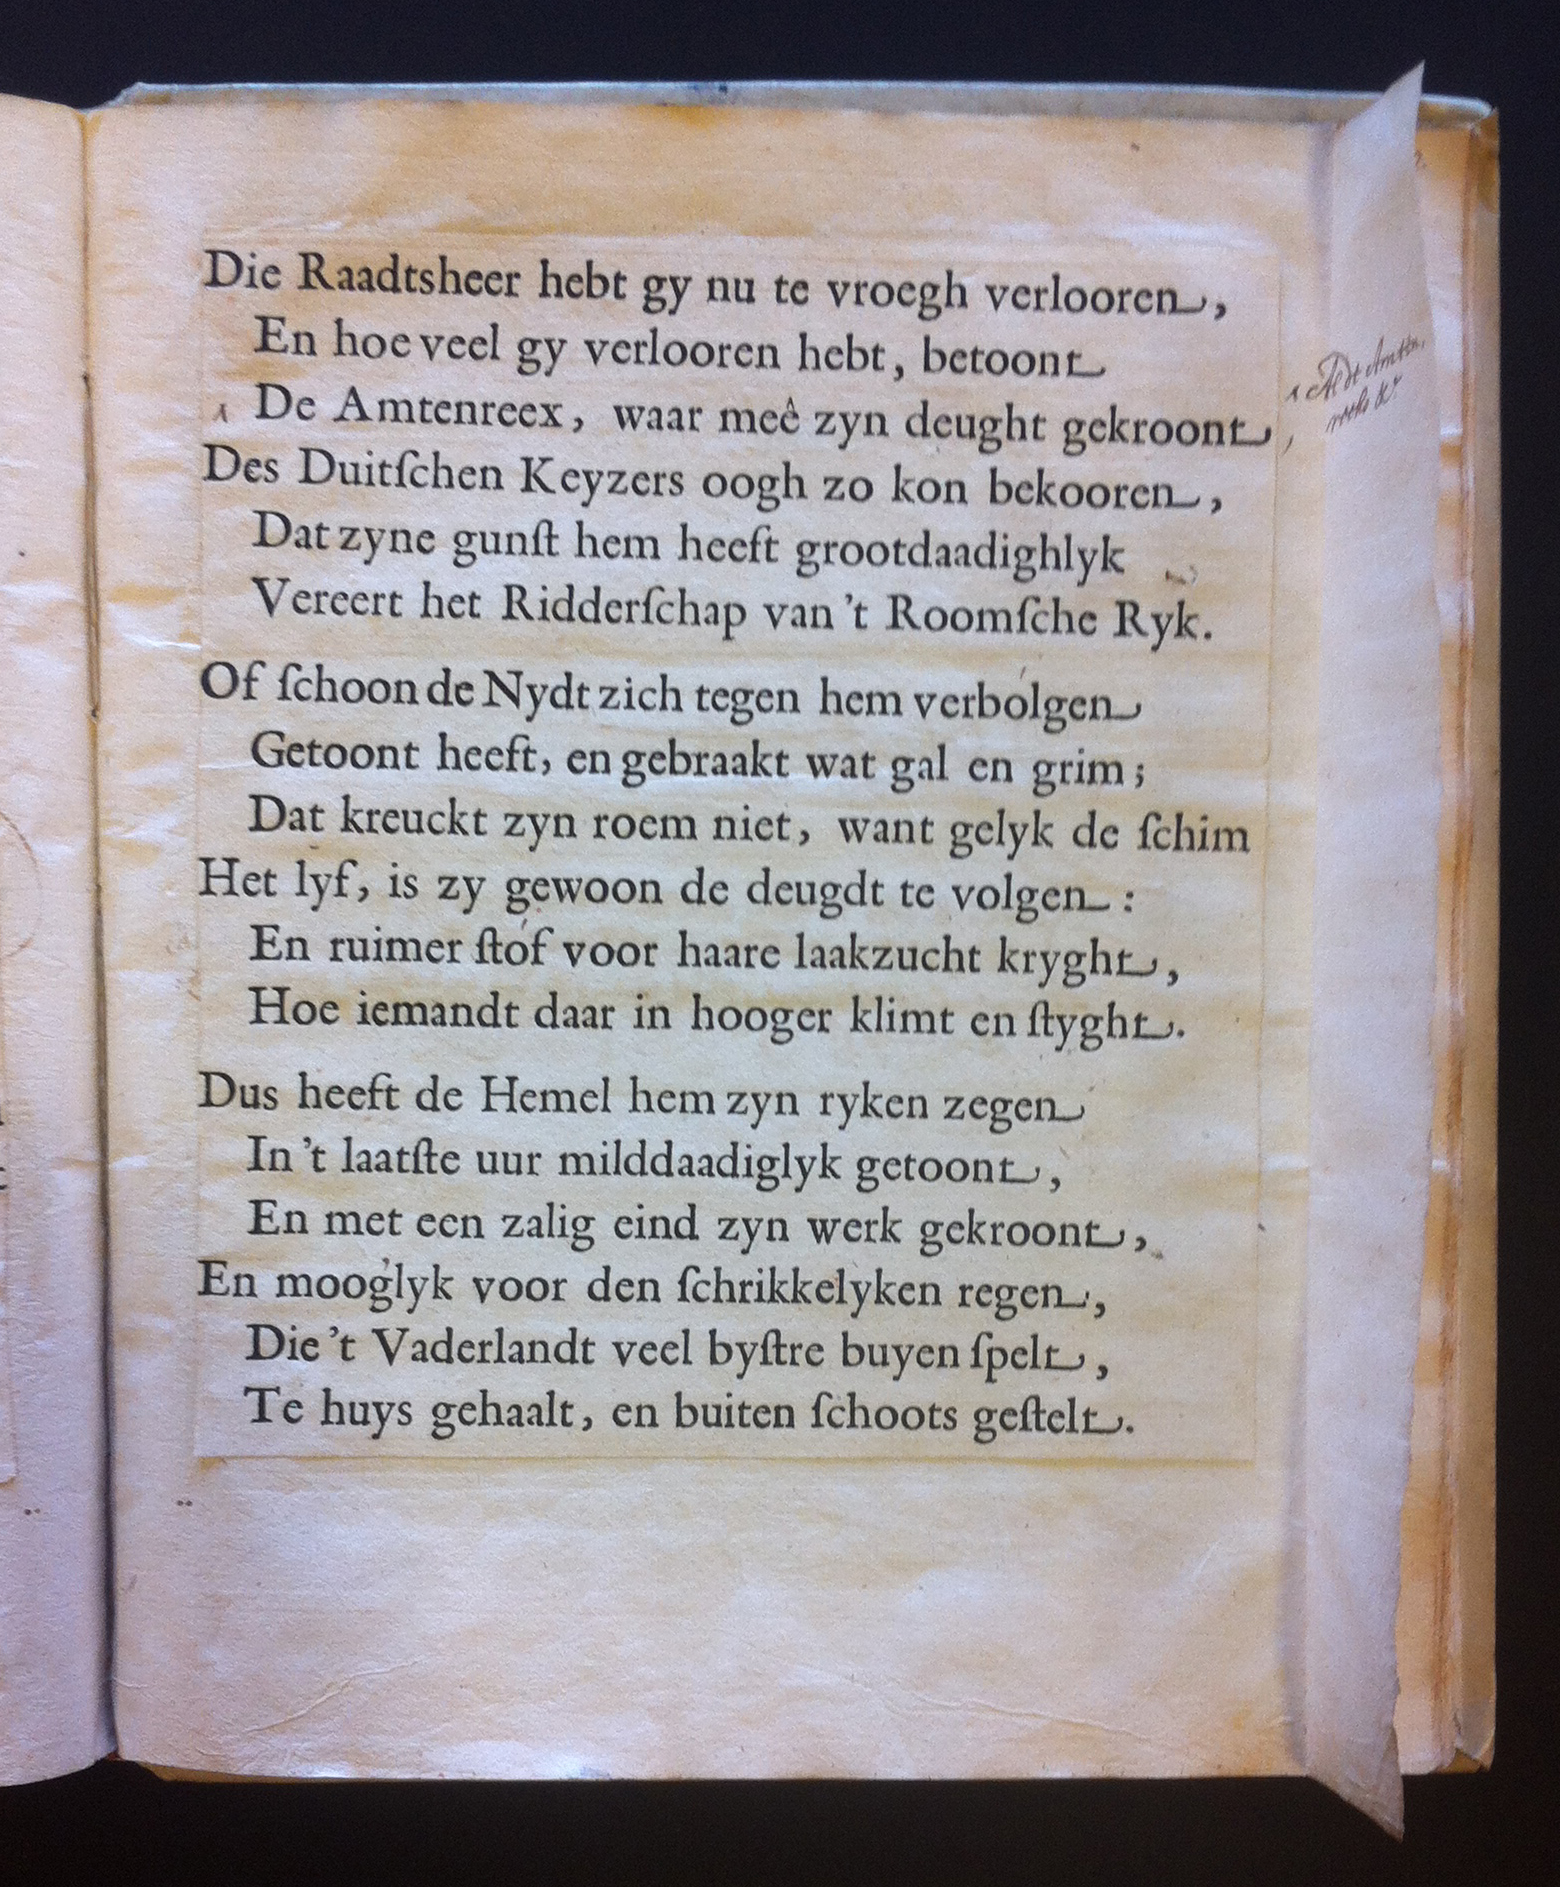 Die Raadtsheer hebt gy nu te vroegh verlooren,
En hoe veel gy verlooren hebt, betoont
De Amtenreex, waar meê zyn deught gekroont,
Des Duitſchen Keyzers oogh zo kon bekooren,
Dat zyne gunſt hem heeft grootdaadighlyk
Vereert het Ridderſchap van 't Roomſche Ryk.
Of ſchoon de Nydt zich tegen hem verbolgen
Getoont heeft, en gebraakt wat gal en grim;
Dat kreuckt zyn roem niet, want gelyk de ſchim
Het lyf, is zy gewoon de deugdt te volgen:
En ruimer ſtof voor haare laakzucht kryght,
Hoe iemandt daar in hooger klimt en ſtyght.
Dus heeft de Hemel hem zyn ryken zegen
In 't laatſte uur milddaadiglyk getoont,
En met een zalig eind zyn werk gekroont,
En mooglyk voor den ſchrikkelyken regen,
Die 't Vaderlandt veel byſtre buyen ſpelt,
Te huys gehaalt, en buiten ſchoots geſtelt.